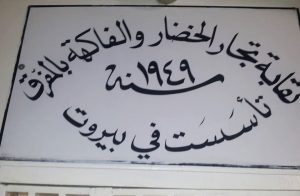 نقابة تجار الخضار والفاكهة بالمفرق
تأسست في بيروت
سنة ١٩٤٩